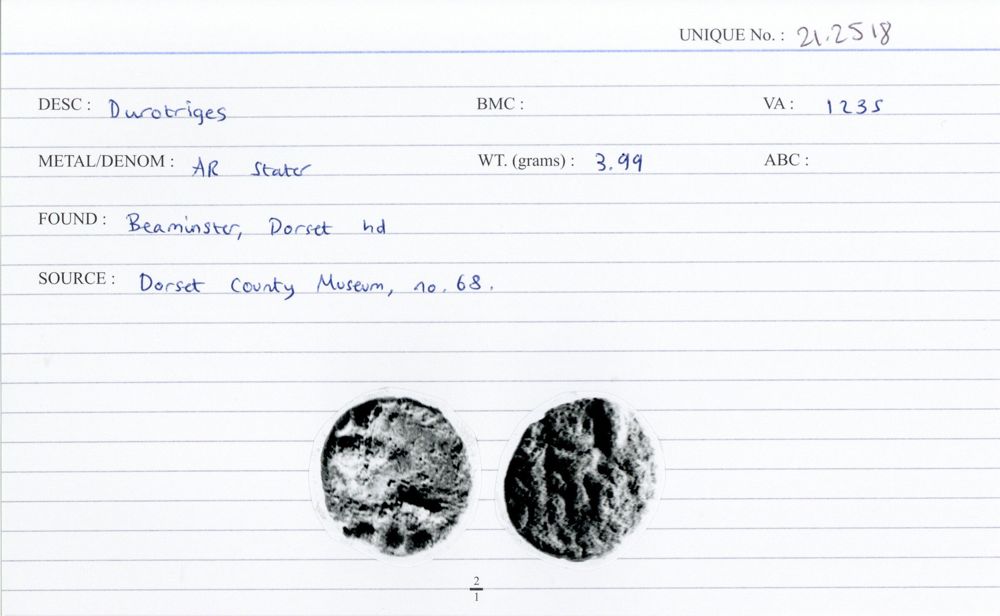 UNIQUE No. : 21.2518
DESC : Durotriges BMC : VA : 1235
METAL/DENOM : AR Stater WT. (grams) : 3.99 ABC :
FOUND : Beaminster, Dorset hd
SOURCE : Dorset County Museum, no. 68.
2
1